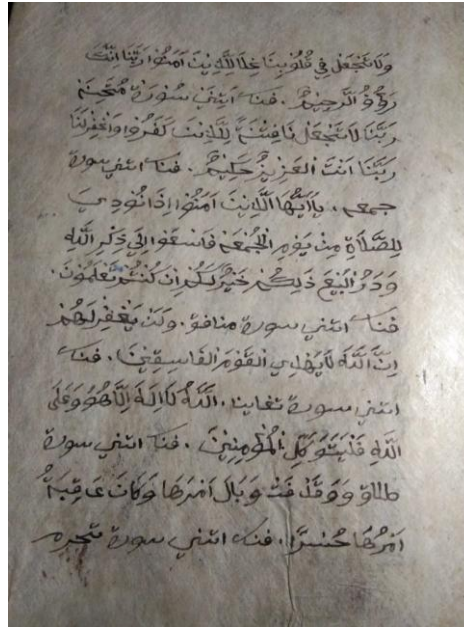 وَلَا تَجْعَلْ فِي قُلُوبِنَا غِلًّا لِلَّذِينَ آمَنُوا رَبَّنَا إِنَّكَ
رَءُوفُ الرَّحِيمُ. فنك اتني سُورَة مُتَحِنَه
رَبَّنَا لَا تَجْعَلْنَا فِتْنَةً لِلَّذِينَ كَفَرُوا وَاغْفِرْ لَنَا
رَبَّنَا أَنْتَ الْعَزِيزُ حَكِيمُ. فنك اتني سورة
جمعه. يَاأَيُّهَا الَّذِينَ آمَنُوا إِذَا نُودِيَ
لِلصَّلَاةِ مِنْ يَوْمِ الْجُمْعَه فَاسْعَوْا إِلَى ذِكْرِ اللَّه
وَذَرُ الْبَيْعَ ذَلِكُمْ خَيْرٌ لَكُمْ إِنْ كُنْتُمْ تَعْلَمُونَ.
فنك اتني سورة منافق. وَلَنْ يَغْفِرَ لَهُمْ
إِنَّ اللَّهَ لَا يَهْدِي الْقَوْمَ الْفَاسِقِينَ. فنك
اتني سورة تغابنا. اللَّهُ لَا إِلَهَ إِلَّا هُوَ وَعَلَى
اللَّهِ فَلْيَتَوَكَّلِ الْمُؤْمِنِينَ. فنك اتني سورة
طلاق وَ قت وَبَالَ أَمْرِهَا وَكَانَ عَاقِبَةُ
أَمْرِهَا خُسْرًا. فنك اتني سورة تحرم